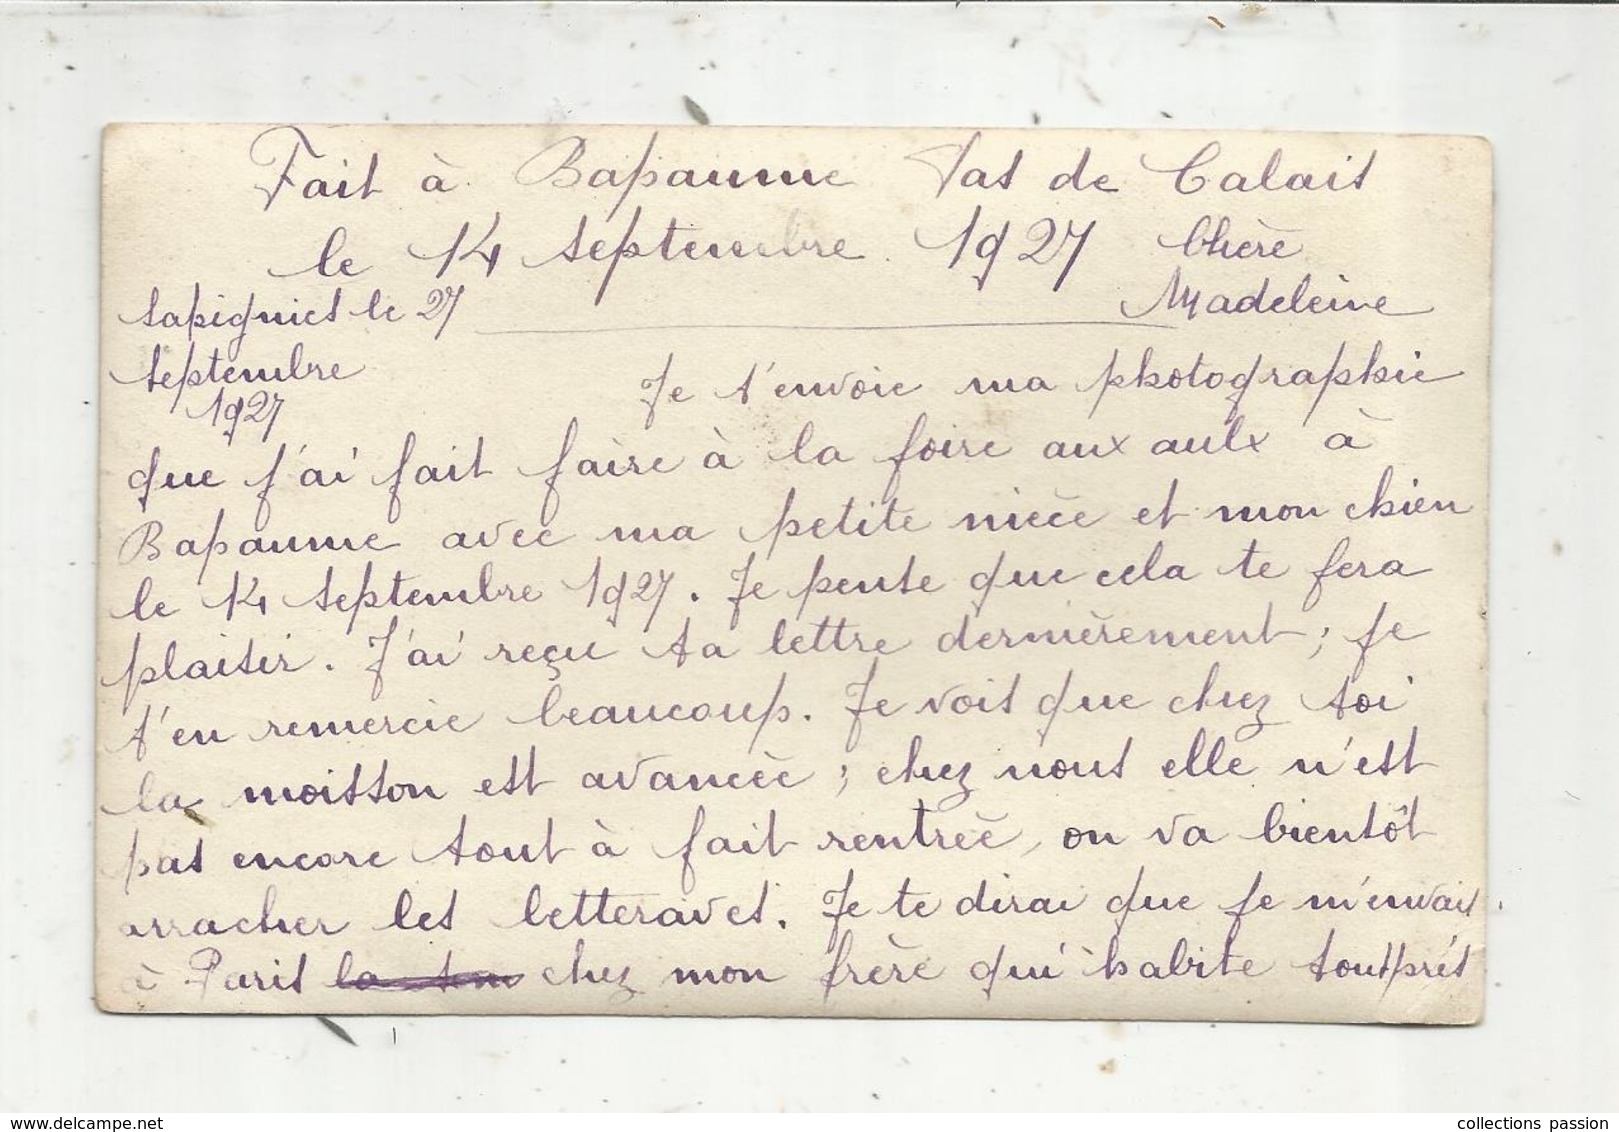 Fait à Bapaume Pas de Calais
le 14 septembre 1927 Chère
Madeleine
sapignies le 27
septembre
1927
Je t'envoie ma photographie
que j'ai fait faire à la foire aux aulx à
Bapaume avec ma petite nièce et mon chien
le 14 septembre 1927. Je pense que cela te fera
plaisir. J'ai reçu ta lettre dernièrement ; je
t'en remercie beaucoup. Je vois que chez toi
la moisson est avancée ; chez nous elle n'est
pas encore tout à fait rentrée, on va bientôt
arracher les betteraves. Je te dirai que je m'envais
à Paris chez mon frère qui habite tout près
delcampe.net
collections passion